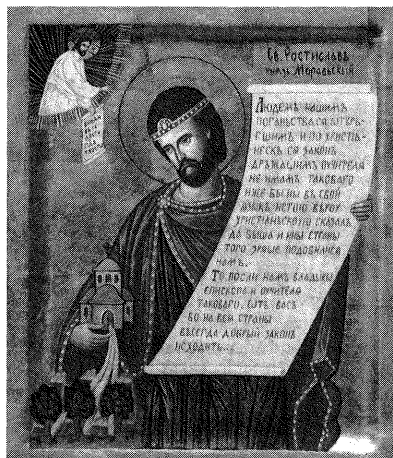 Св. Ростиславъ
князь Моравьский
Людемъ нашимъ
поганьства ся отверъ-
сшимъ и по хрисꙆа-
нескъ ся законъ
дръжащимъ оучителя
не имамъ таковаго
иже бы ны въ свой
языкъ истоую вѣроу
христіаньскоую сказалъ
да быша и ины страны
того зряще подобилися
намъ.
То посли намъ владыко
епископа и оучителя
таковаго. Отъ васъ
бо на вся страны
вьсегда добрый законъ
исходить...